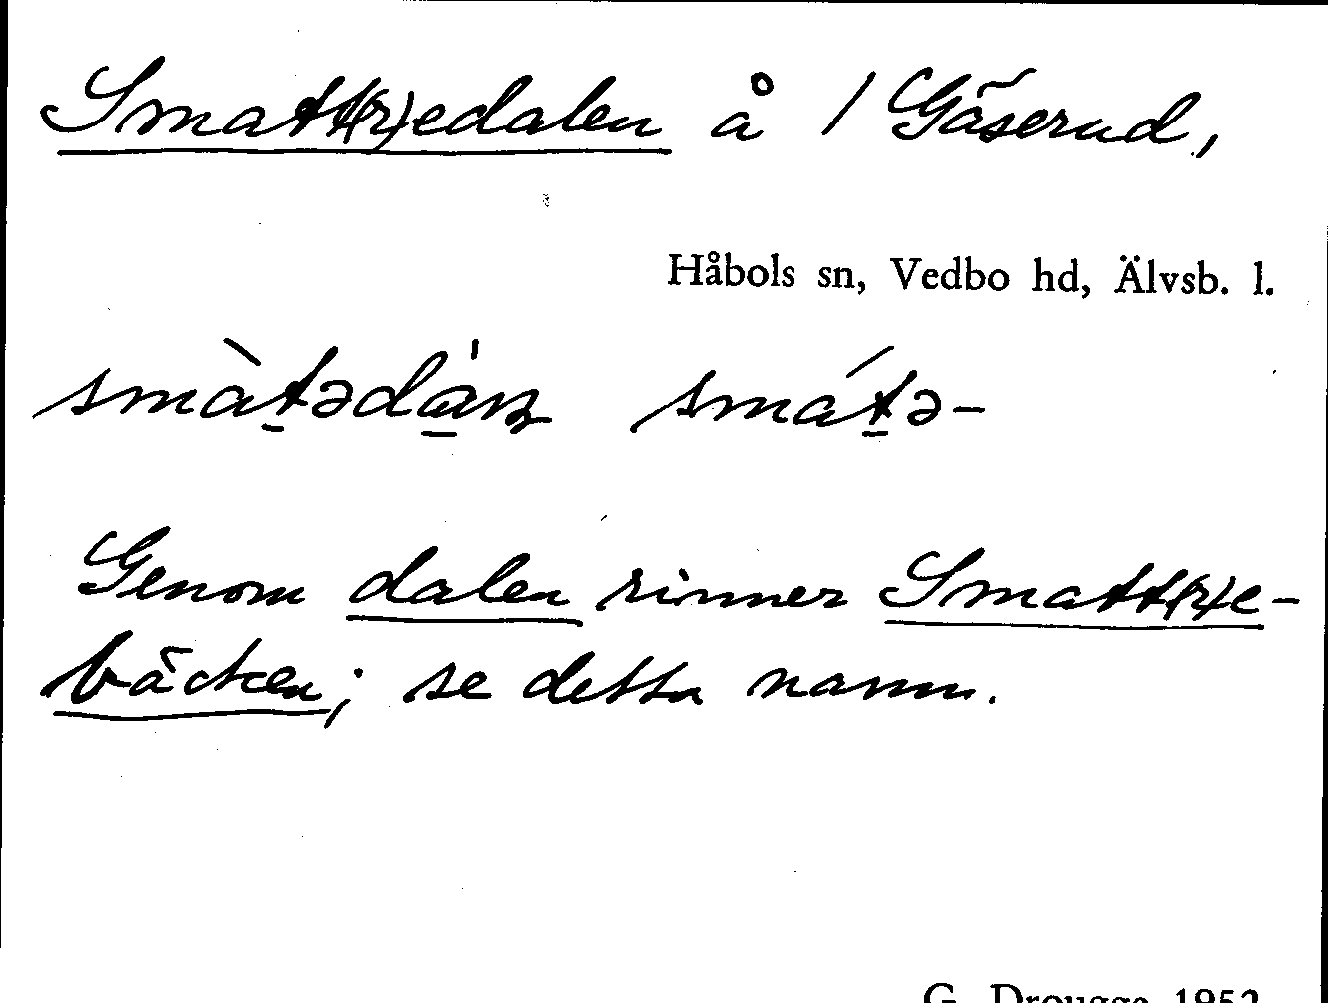 Smatt(r)edalen å / Gäserud,
Håbols sn, Vedbo hd, Älvsb. l.
smàt̠ədà̠ɳ smát̠ə-
Genom dalen rinner Smatt(r)e-
bäcken; se detta namn.
G. Drougge 1952